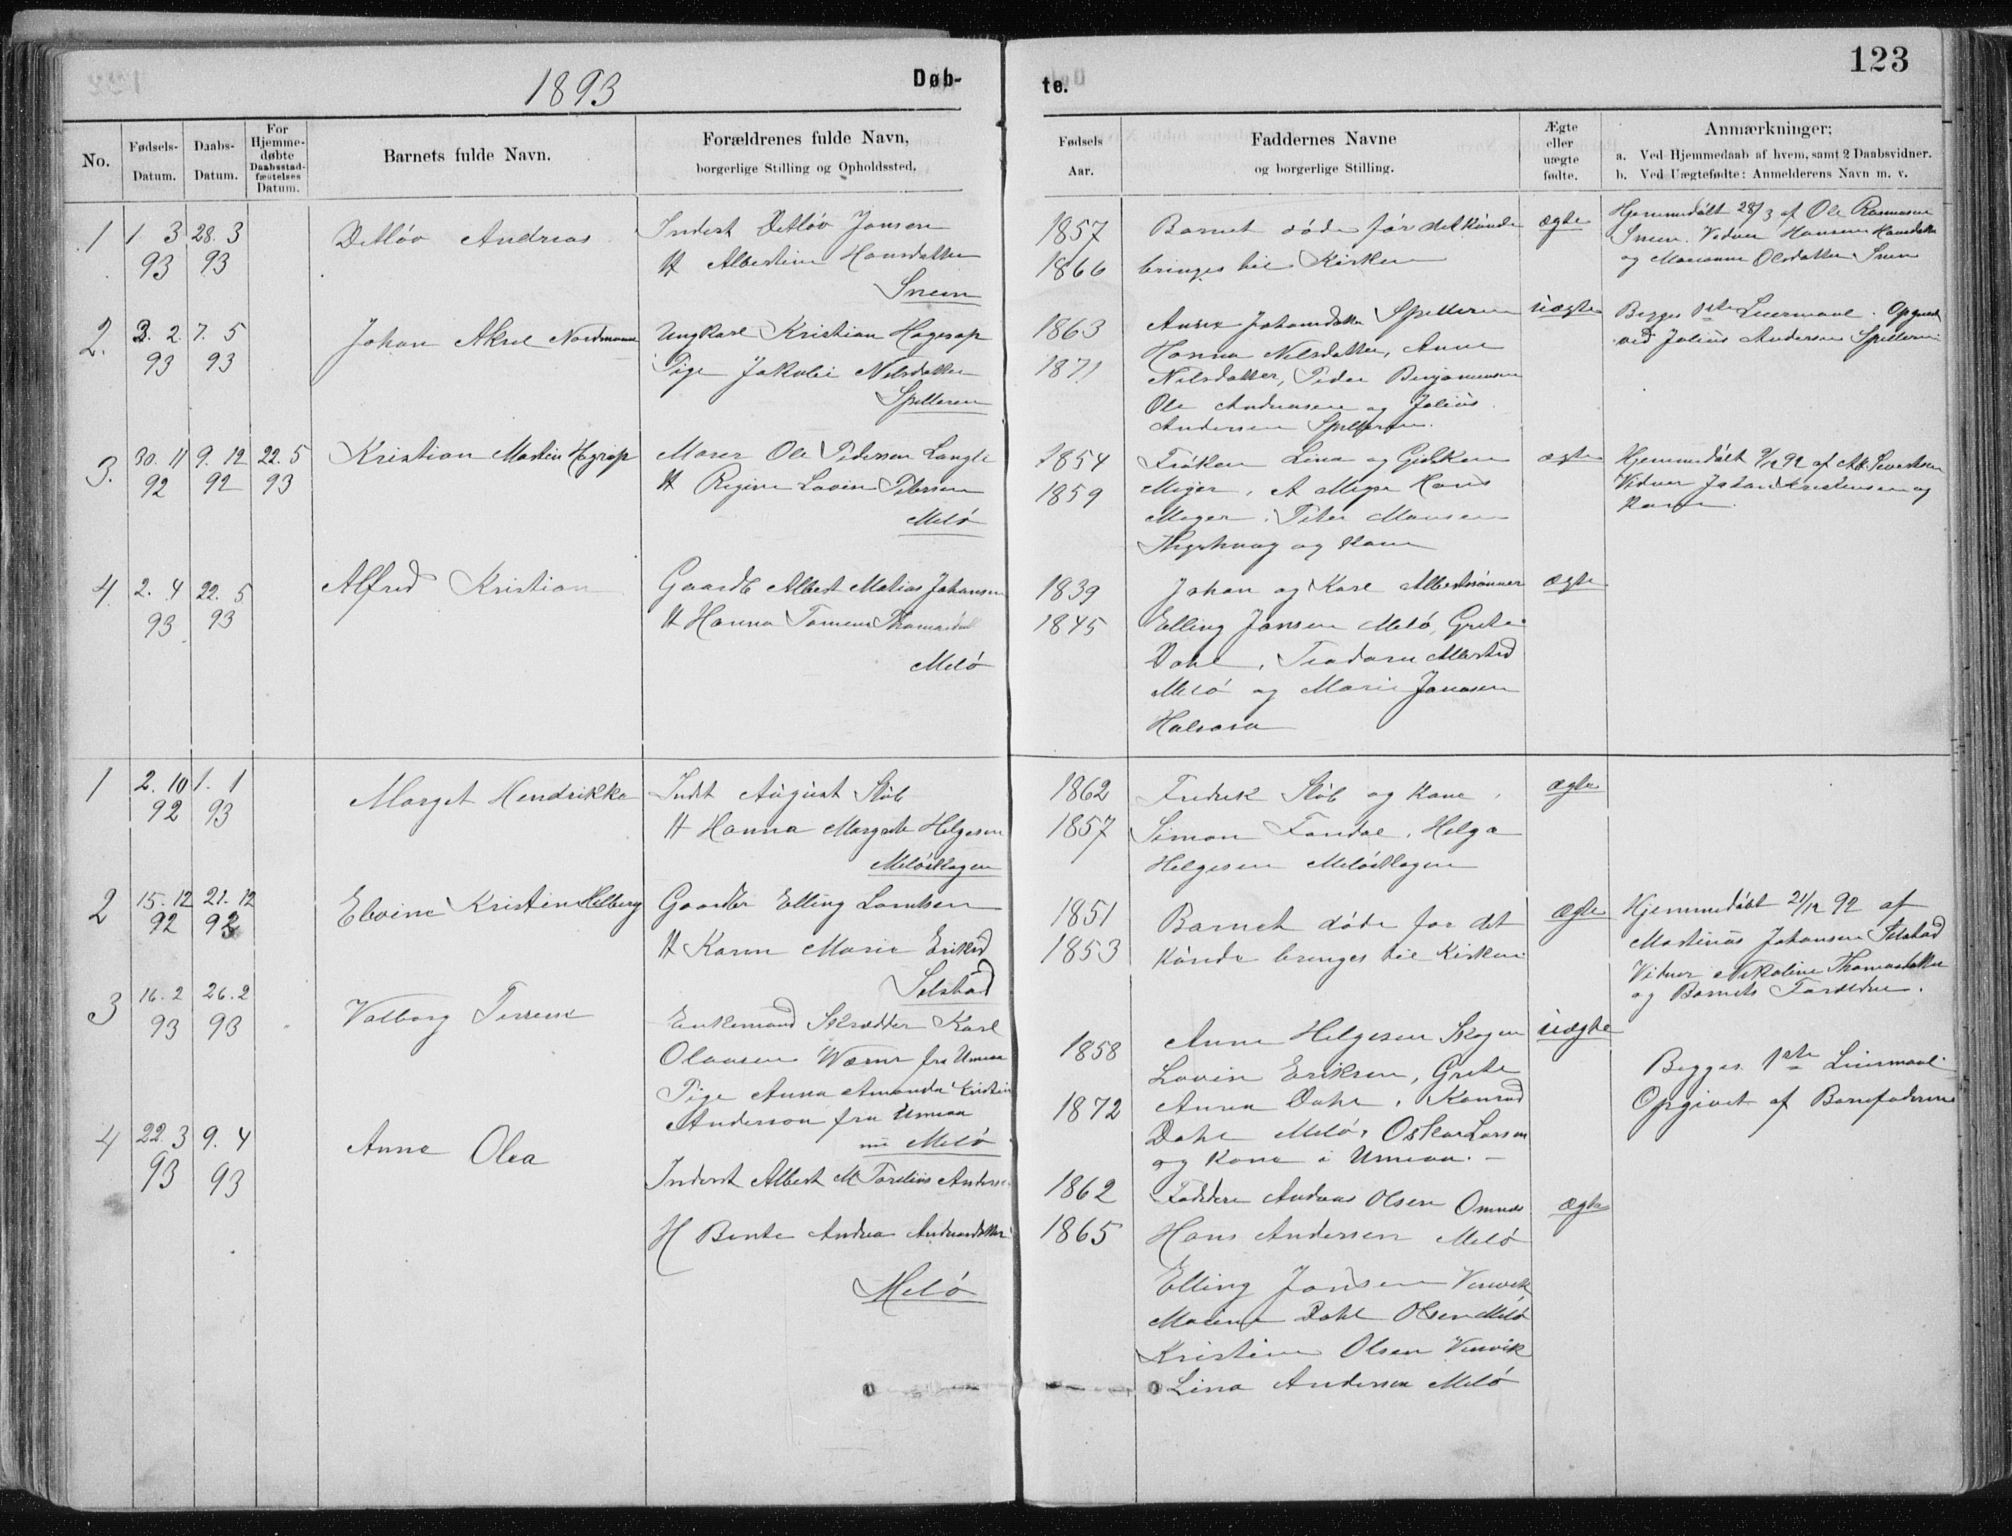 1893
Døb-
No.
Fødsels-
Datum.
Daabs-
Datum.
For
Hjemme-
døbte
Daabsstad-
fæstelses
Datum.
Barnets fulde Navn.
Forældrenes fulde Navn,
borgerlige Stilling og Opholdssted,
1 1. 3 28. 3
93 93
Detløv Andreas
Inderst Detløv Jonsen
H Albertine Hansdatter
Sneen
2. 3. 2. 7. 5
93 93
Johan Aksel Nordmann
Ungkarl Kristian Hagerop
Pige Jakobie Nilsdatter
Spilderen
3. 30. 11 9. 12 22. 5
92 92 93
Kristian Martin Hagrop
Maser Ole Pedersen Langli
H Regine Lovise Petersen
Melö
4. 2. 4 22. 5
93 93
Alfred Kristian
Gaardb Albert Matias Johansen
H Hanna
Melö
1 2. 10 1. 1
92 93
Marget Hendrikke
Indst August Støb
H Hanna Margrete Helgesen
Meløskagen
2 15. 12 21. 12
92 92
Elvine Kristine Helberg
Gaardbr Elling Lorntsen
H Karen Marie Eriksd
Selstad
3 16. 2 26. 2
93 93
Valborg Terrese
Enkemand Skrædder Karl
Olausen Werner fra Umeaa
Pige Anna Amanda Kristin
Anderson fra Umeaa
nu Melö
4 22. 3 9. 4
93 93
Anne Olea
Inderst Albert M Torelius Anders
H Bente Andrea Andreasdatter
Melö
te.
123
Fødsels
Aar.
Faddernes Navne
og borgerlige Stilling.
Ægte
eller
uægte
fødte.
Anmærkninger;
a. Ved Hjemmedaab af hvem, samt 2 Daabsvidner.
b. Ved Uægtefødte: Anmelderens Navn m. v.
1857 Barnet døde før det kunde
1866 bringes til Kirken
ægte
Hjemmedøbt 28/3 af Ole Rasmussen
Sneen. Vidner Hansine Hansdatter
og Marianne Olsdatter Sneen
1863 Anne Johansdatter Spilderen
Hanna Nilsdatter, Anne
1871 Nilsdatter, Peder Benjaminsen
Ole Andreasen og Julius
Andersen Spilderen.
uægte
Begges 1ste Leiermaal. Opgivet
ved Julius Andersen Spilderen
1854 Frøken Lina og Gidsken
1859 Meyer, A Meyer Hans
Meyer, Peter Monsen
og Kone
ægte
Hjemmedøbt 9/12 92 af Ak. Sivertsen
Vidner Johan Kristensen og
Kone.
1839 Johan og Karl Albertsønner
1845 Elling Jansen Melö, Grete
Dahl, Teodora Albertsd
Melö og Marie Jonasen
Halsosa
ægte
1862 Fredrik Støb og Kone,
1857 Simon Fondal, Helga
Helgesen Meløskagen
ægte
1851 Barnet døde før det
1853 kunde bringes til Kirken
Ægte
Hjemmedøbt 21/12 92 af
Martinus Johansen Selstad
Vidner Nikoline Thomasdatter
og Barnets Forældre.
1858 Anne Helgesen Skagen
Lovise Eriksen, Grete
1872 Anna Dahl, Konrad
Dahl Melö, Oskar Larsen
og Kone i Umeaa.
uægte
Begges 1ste Leiermaal
Opgivet af Barnefaderen
1862 Faddere Andreas Olsen Omnæs
1865 Hans Andersen Melö
Elling Jansen Vinvik
Marine Dahl Olsen Melö
Kristine Olsen Vinvik
Lina Andersen Melö
ægte